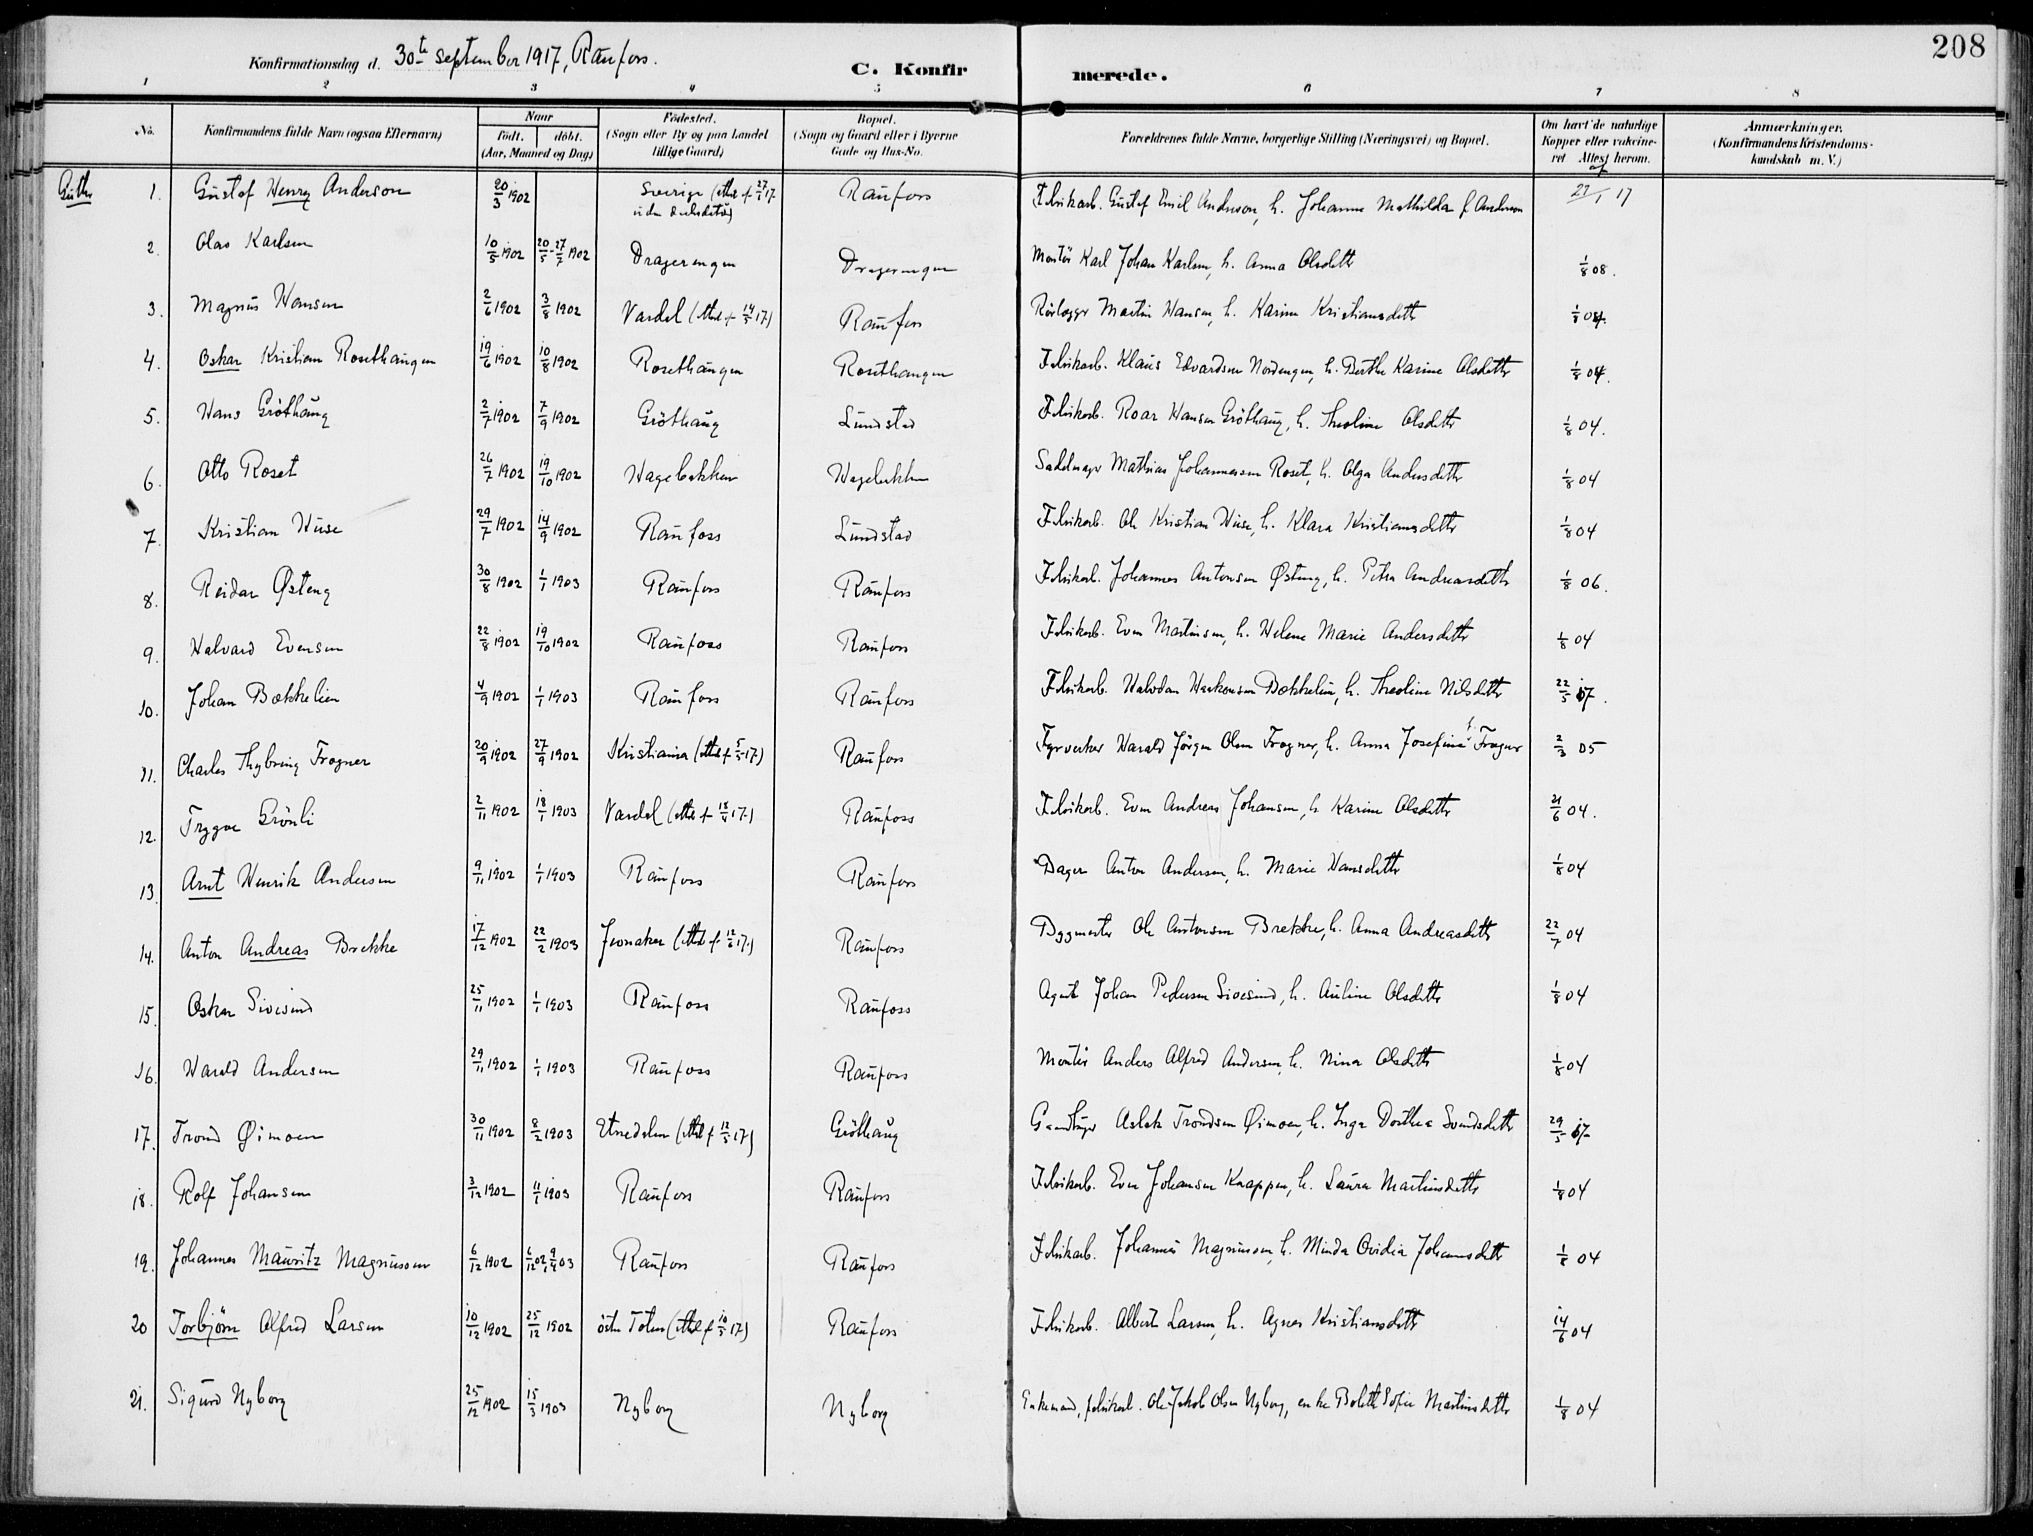 208
Konfirmationsdag d. 30te september 1917, Raufoss.
C. Konfirmerede.
1 2 3 4 5 6 7 8
No.
Konfirmandens fulde Navn (ogsaa Efternavn)
Naar
født. døbt.
(Aar, Maaned og Dag)
Fødested.
(Sogn eller By og paa Landet
tillige Gaard)
Bopæl.
(Sogn og Gaard eller i Byerne
Gade og Hus-No.
Forældrenes fulde Navne, borgerlige Stilling (Næringsvei) og Bopæl.
Om havt de naturlige
Kopper eller vakcine-
ret Attest herom.
Anmærkninger.
(Konfirmandens Kristendoms-
kundskab m. V.)
1. Gustaf Henry Anderson 20/3 1902 Sverige Raufoss Fabrikarb. Gustaf Emil Anderson, h. Johanna Mathilda f. Anderson
2. Olav Karlsen 10/5 1902 20/5 - 27/7 1902 Dragerengen Dragerengen Montør Karl Johan Karlsen, h. Anna Olsdttr 1/8 08.
3. Magnus Hansen 2/6 1902 3/8 1902 Vardal (attest f 14/5 17) Raufoss Rørlægger Martin Hansen, h. Karine Kristiansdttr 1/8 04.
4. Oskar Kristian Rosethaugen 19/6 1902 10/8 1902 Rosethaugen Rosethaugen Fabrikarb. Klaus Edvardsen Nordengen, h. Berthe Karine Olsdttr 1/8 04.
5. Hans Grøthaug 2/7 1902 7/9 1902 Grøthaug Lundstad Fabrikarb. Roar Hansen Grøthaug, h. Theoline Olsdttr 1/8 04.
6. Otto Roset 26/7 1902 19/10 1902 Hagebakken Hagebakken Sadelmager Mathias Johannessen Roset, h. Olga Andersdttr 1/8 04
7. Kristian Huse 29/7 1902 14/9 1902 Raufoss Lundstad Fabrikarb. Ole Kristian Huse, h. Klara Kristiansdttr 1/8 04
8. Reidar Østeng 30/8 1902 1/1 1903 Raufoss Raufoss Fabrikarb. Johannes Antonsen Østeng, h. Petra Andreasdttr 1/8 06.
9. Halvard Evensen 22/8 1902 19/10 1902 Raufoss Raufoss Fabrikarb. Even Martinsen, h. Helene Marie Andersdttr 1/8 04
10. Johan Bækkelien 4/9 1902 1/1 1903 Raufoss Raufoss Fabrikarb. Halvdan Haakonsen Bækkelien, h. Theoline Nilsdttr 22/5 17.
11. Charles Thybring Frogner 20/9 1902 27/9 1902 Kristiania (attest f 5/5 17) Raufoss Fyrverker Harald Jørgen Olsen Frogner, h. Anna Josefine f. Frogner 2/3 05
12. Trygve Grønli 2/11 1902 18/1 1903 Vardal Raufoss Fabrikarb. Even Andreas Johansen, h. Karine Olsdttr 21/6 04.
13. Arnt Henrik Andersen 9/11 1902 1/1 1903 Raufoss Raufoss Bager Anton Andersen, h. Marie Hansdttr 1/8 04
14. Anton Andreas Brekke 17/12 1902 22/2 1903 Jevnaker (attest f 12/6 17.) Raufoss Bygmester Ole Antonsen Brekke, h. Anna Andreasdttr 22/7 04
15. Oskar Sivesind 25/11 1902 1/1 1903 Raufoss Raufoss Agent Johan Pedersen Sivesind, h. Auline Olsdttr 1/8 04
16. Harald Andersen 29/11 1902 1/1 1903 Raufoss Raufoss Montør Anders Alfred Andersen, h. Nina Olsdttr 1/8 04
17. Trond Øimoen 30/11 1902 8/2 1903 Etnedalen (attest f 12/5 17) Grøthaug Aslak Trondsen Øimoen, h. Inga Dorthea Svendsdttr 29/5 17
18. Rolf Johansen 3/12 1902 11/1 1903 Raufoss Raufoss Fabrikarb. Even Johansen Knappen, h. Laura Martinsdttr 1/8 04
19. Johannes Mauritz Magnussen 6/12 1902 Raufoss Raufoss Fabrikarb. Johannes Magnussen, h. Minda Ovidia Johannesdttr 1/8 04
20 Torbjørn Alfred Larsen 10/12 1902 25/12 1902 østre Toten (attest f 10/5 17) Raufoss Fabrikarb. Albert Larsen, h. Agnes Kristiansdttr 14/6 04
21. Sigurd Nyborg 25/12 1902 15/3 1903 Nyborg Nyborg Enkemand, fabrikarb. Ole Jakob Olsen Nyborg, Bolette Sofie Martinsdttr 1/8 04